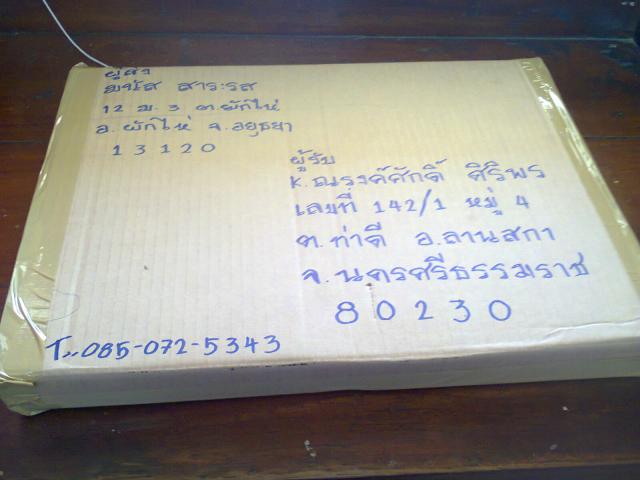 ผู้ส่ง
มนัส สาระรส
12 ม. 3 ต.ผักไห่
อ. ผักไห่ จ. อยุธยา
13120
ผู้รับ
K. ณรงค์ศักดิ์ ศิริพร
เลขที่ 142/1 หมู่ 4
ต. ท่าดี อ. ลานสกา
จ. นครศรีธรรมราช
80230
T.. 085-072-5343